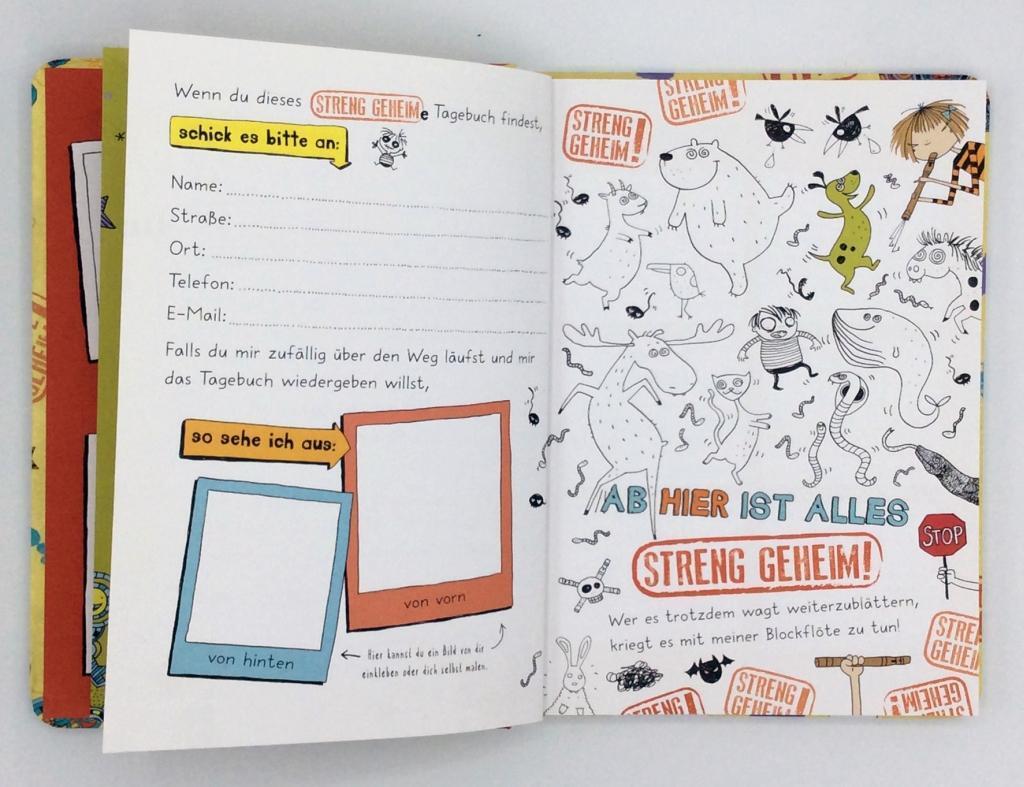 Wenn du dieses STRENG GEHEIMe Tagebuch findest,
schick es bitte an:
Name:
Straße:
Ort:
Telefon:
E-Mail:
Falls du mir zufällig über den Weg läufst und mir
das Tagebuch wiedergeben willst,
so sehe ich aus:
von vorn
von hinten
Hier kannst du ein Bild von dir
einkleben oder dich selbst malen.
STRENG
GEHEIM!
STRENG
GEHEIM!
AB HIER IST ALLES
STRENG GEHEIM!
STOP
Wer es trotzdem wagt weiterzublättern,
kriegt es mit meiner Blockflöte zu tun!
STRE
GEHEIM
STRENG
GEHEIM!
STRENG
GEHEIM!